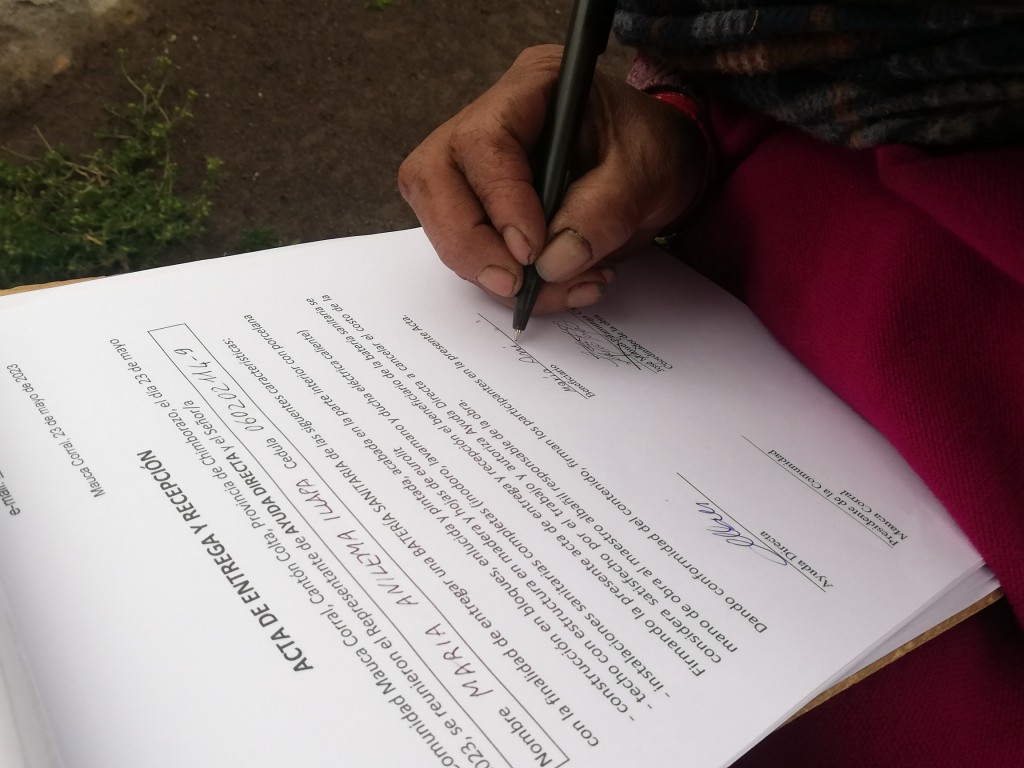 e-mail:
Mauca Corral, 23 de mayo de 2023
ACTA DE ENTREGA Y RECEPCIÓN
comunidad Mauca Corral, Cantón Colta, Provincia de Chimborazo, el día 23 de mayo
2023, se reunieron el Representante de AYUDA DIRECTA y el Señor/a
Nombre MARIA ANILEMA ILLAPA Cedula
con la finalidad de entregar una BATERIA SANITARIA de las siguentes características:
- construcción en bloques, enlucida y pintada, acabada en la parte interior con porcelana
- techo con estructura en madera y hojas de eurolit
- instalaciones sanitarias completas (inodoro, lavamano y ducha eléctrica caliente)
Firmando la presente acta de entrega y recepción el beneficiario de la bateria sanitaria se
considera satisfecho por el trabajo y autoriza Ayuda Directa a cancelar el costo de la
mano de obra al maestro albañil responsable de la obra.
Dando conformidad del contenido, firman los participantes en la presente Acta.
Maria
Ayuda Directa
Beneficiario
Presidente de la Comunidad
Mauca Corral
José